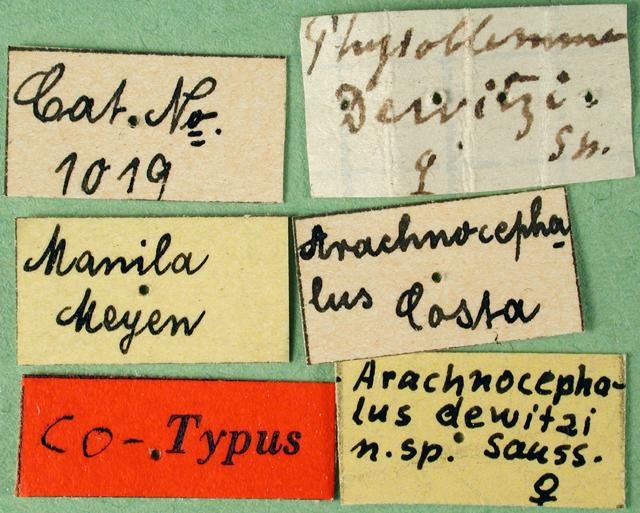 Cat. No.
1019
Physoblemma
Dewitzi.
♀ Sn.
Manila
Meyen
Arachnocepha
lus Costa
Co-Typus
Arachnocepha-
lus dewitzi
n.sp. Sauss.
♀